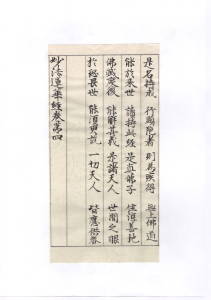 是名持戒 行頭陀者 則為疾得 無上佛道
能於來世 讀持此經 是真佛子 住淳善地
佛滅度後 能解其義 是諸天人 世間之眼
於恐畏世 能須臾說 一切天人 皆應供養
妙法蓮華經卷第四